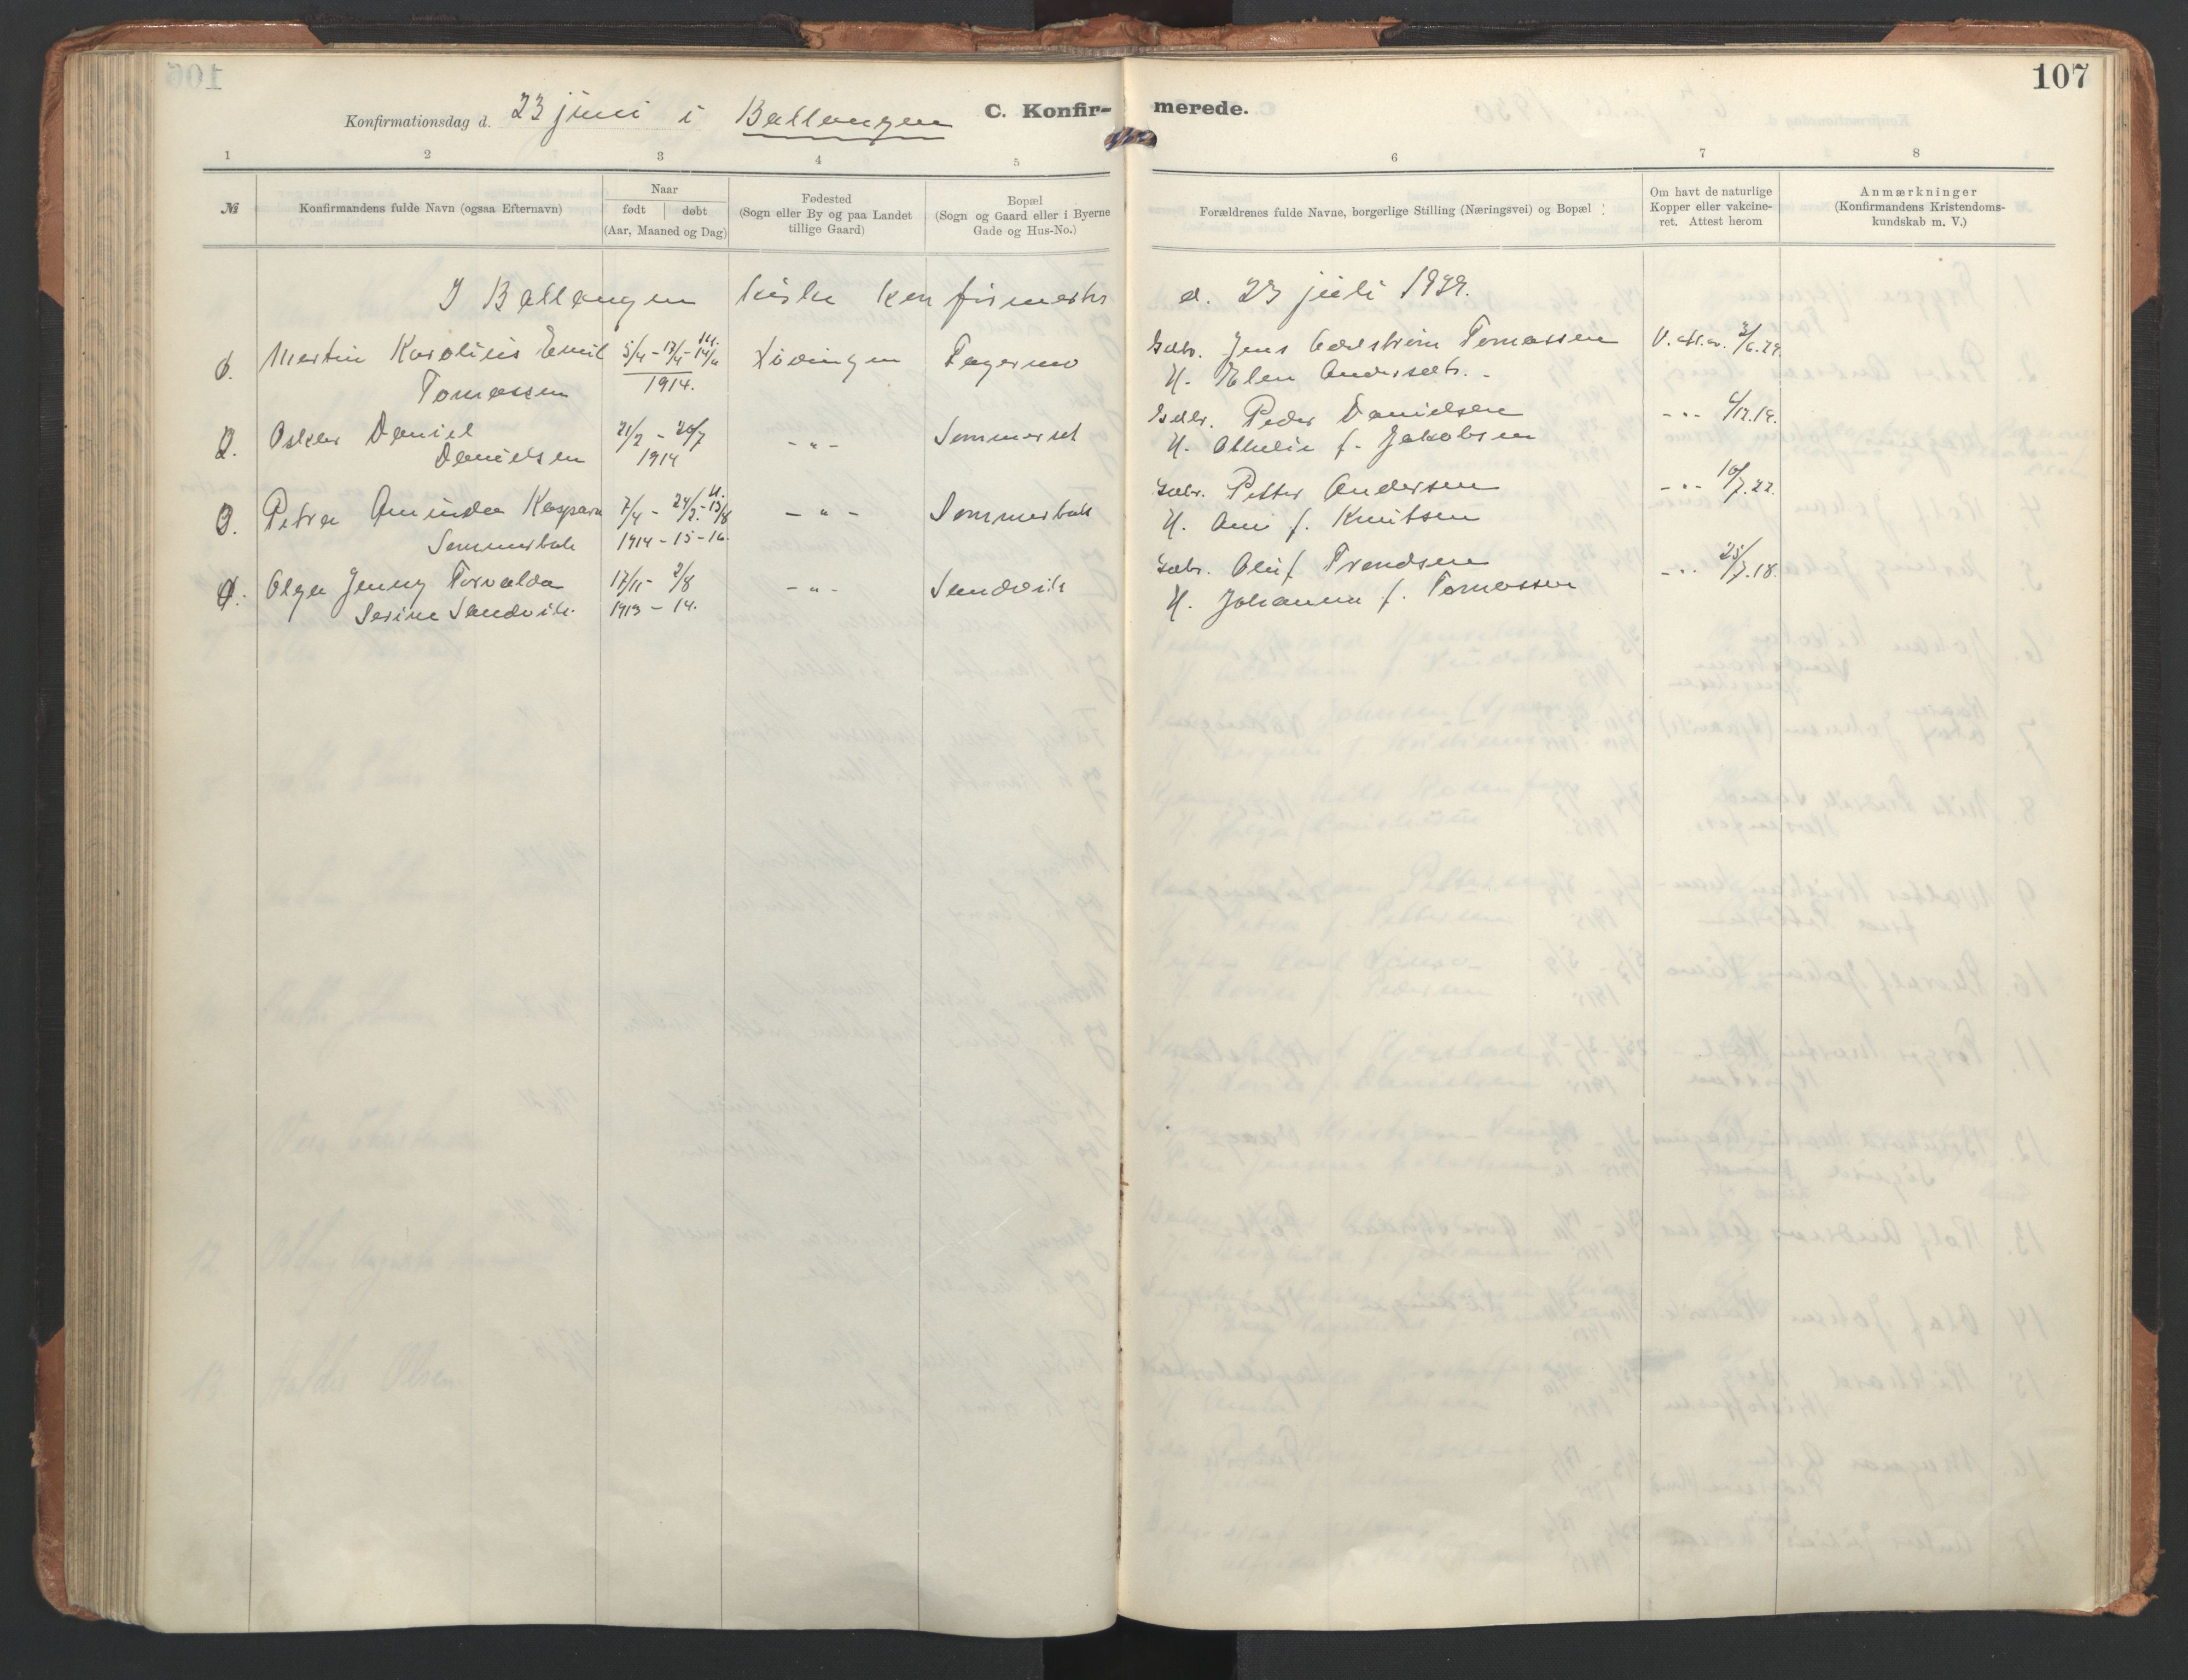 107
Konfirmationsdag d. 23 juni i Ballangen
C. Konfirmerede.
1 2 3 4 5 6 7 8
№
Konfirmandens fulde Navn (ogsaa Efternavn)
Naar
født døbt
(Aar, Maaned og Dag)
Fødested
(Sogn eller By og paa Landet
tillige Gaard)
Bopæl
(Sogn og Gaard eller i Byerne
Gade og Hus-No.)
Forældrenes fulde Navne, borgerlige Stilling (Næringsvei) og Bopæl
Om havt de naturlige
Kopper eller vakcine-
ret. Attest herom
Anmærkninger
(Konfirmandens Kristendoms-
kundskab m. V.)
I Ballangen kirke konfirmertes d. 23 juli 1929.
1. Martin Karolius Emil 5/4 - 13/4 - 14/6 Lødingen Fagermo Gdbr. Jens Edelstrøm Tomassen V. att. av 3/6.29.
Tomassen 1914. H. Elen Andersdtr.
2. Oskar Daniel 21/2 - 26/7 - " - Sommerset Gdbr. Peder Danielsen - " - 4/12.19.
Danielsen 1914 H. Othelie f. Jakobsen
3. Petra Aminda Kaspara 7/4 - 24/2 - 13/8 - " - Sommerbak Gdbr. Petter Andersen - " - 10/7.22.
Sommerbak 1914 - 15 - 16. H. Ane f. Knutsen
4. Olga Jenny Torvalda 17/11 - 2/8 - " - Sandvik Gdbr. Oluf Trondsen - " - 25/7.18.
Serine Sandvik. 1913 - 14. H. Johanna f. Tomassen